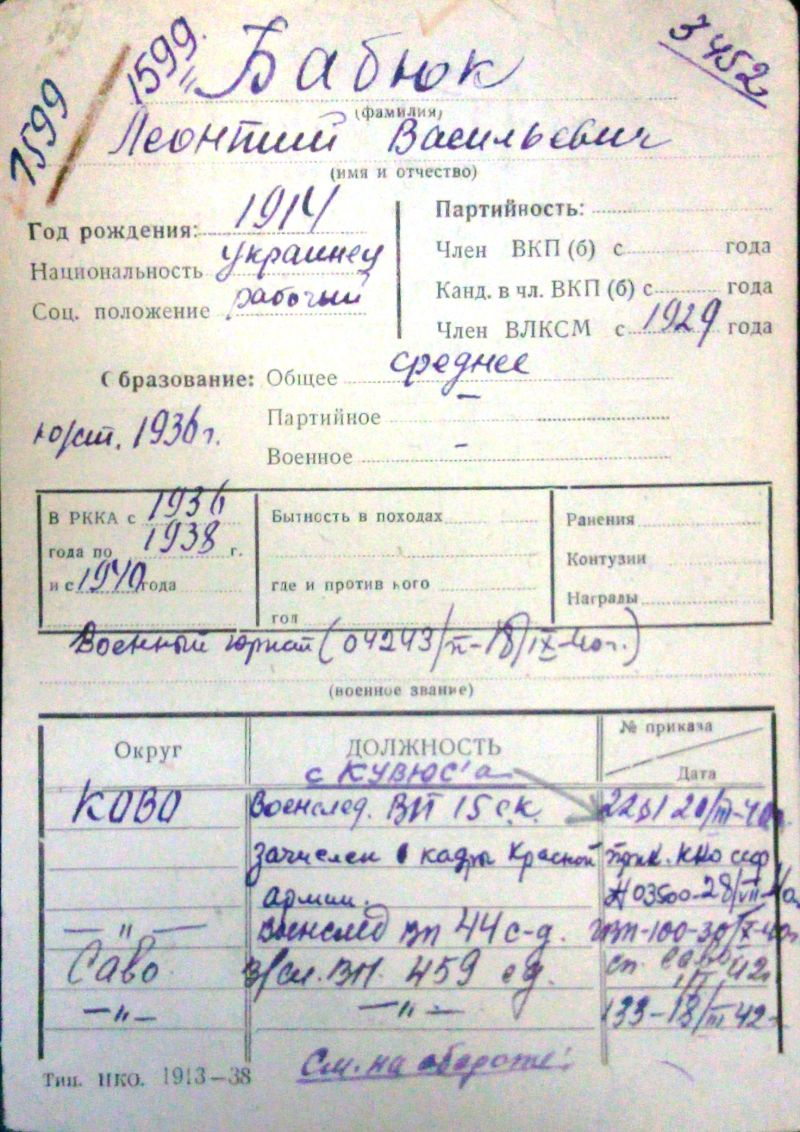 1599
1599.
3452
Бабюк
(фамилия)
Леонтий Васильевич
(имя и отчество)
Год рождения: 1914
Национальность украинец
Соц. положение рабочий
Партийность:
Член ВКП (б) с года
Канд. в чл. ВКП (б) с года
Член ВЛКСМ с 1929 года
Образование: Общее среднее
Партийное –
Военное –
1936 г.
В РККА с 1936
года по 1938 г.
и с 1940 года
Бытность в походах
где и против кого
год
Ранения
Контузии
Награды
Военный юрист (04243/п-18/IX-40г.)
(военное звание)
Округ
ДОЛЖНОСТЬ
№ приказа
Дата
с КУВЮС'а
КОВО Военслед. ВП 15 с.к.
зачислен в кадры Красной НКО ссср
армии. № 03500-28/VII-40
—"— военслед ВП 44 с-д.
Саво ВП. 459 сд.
—"— —"— 133-18/III 42г
См. на обороте:
Тип. НКО. 1913—38